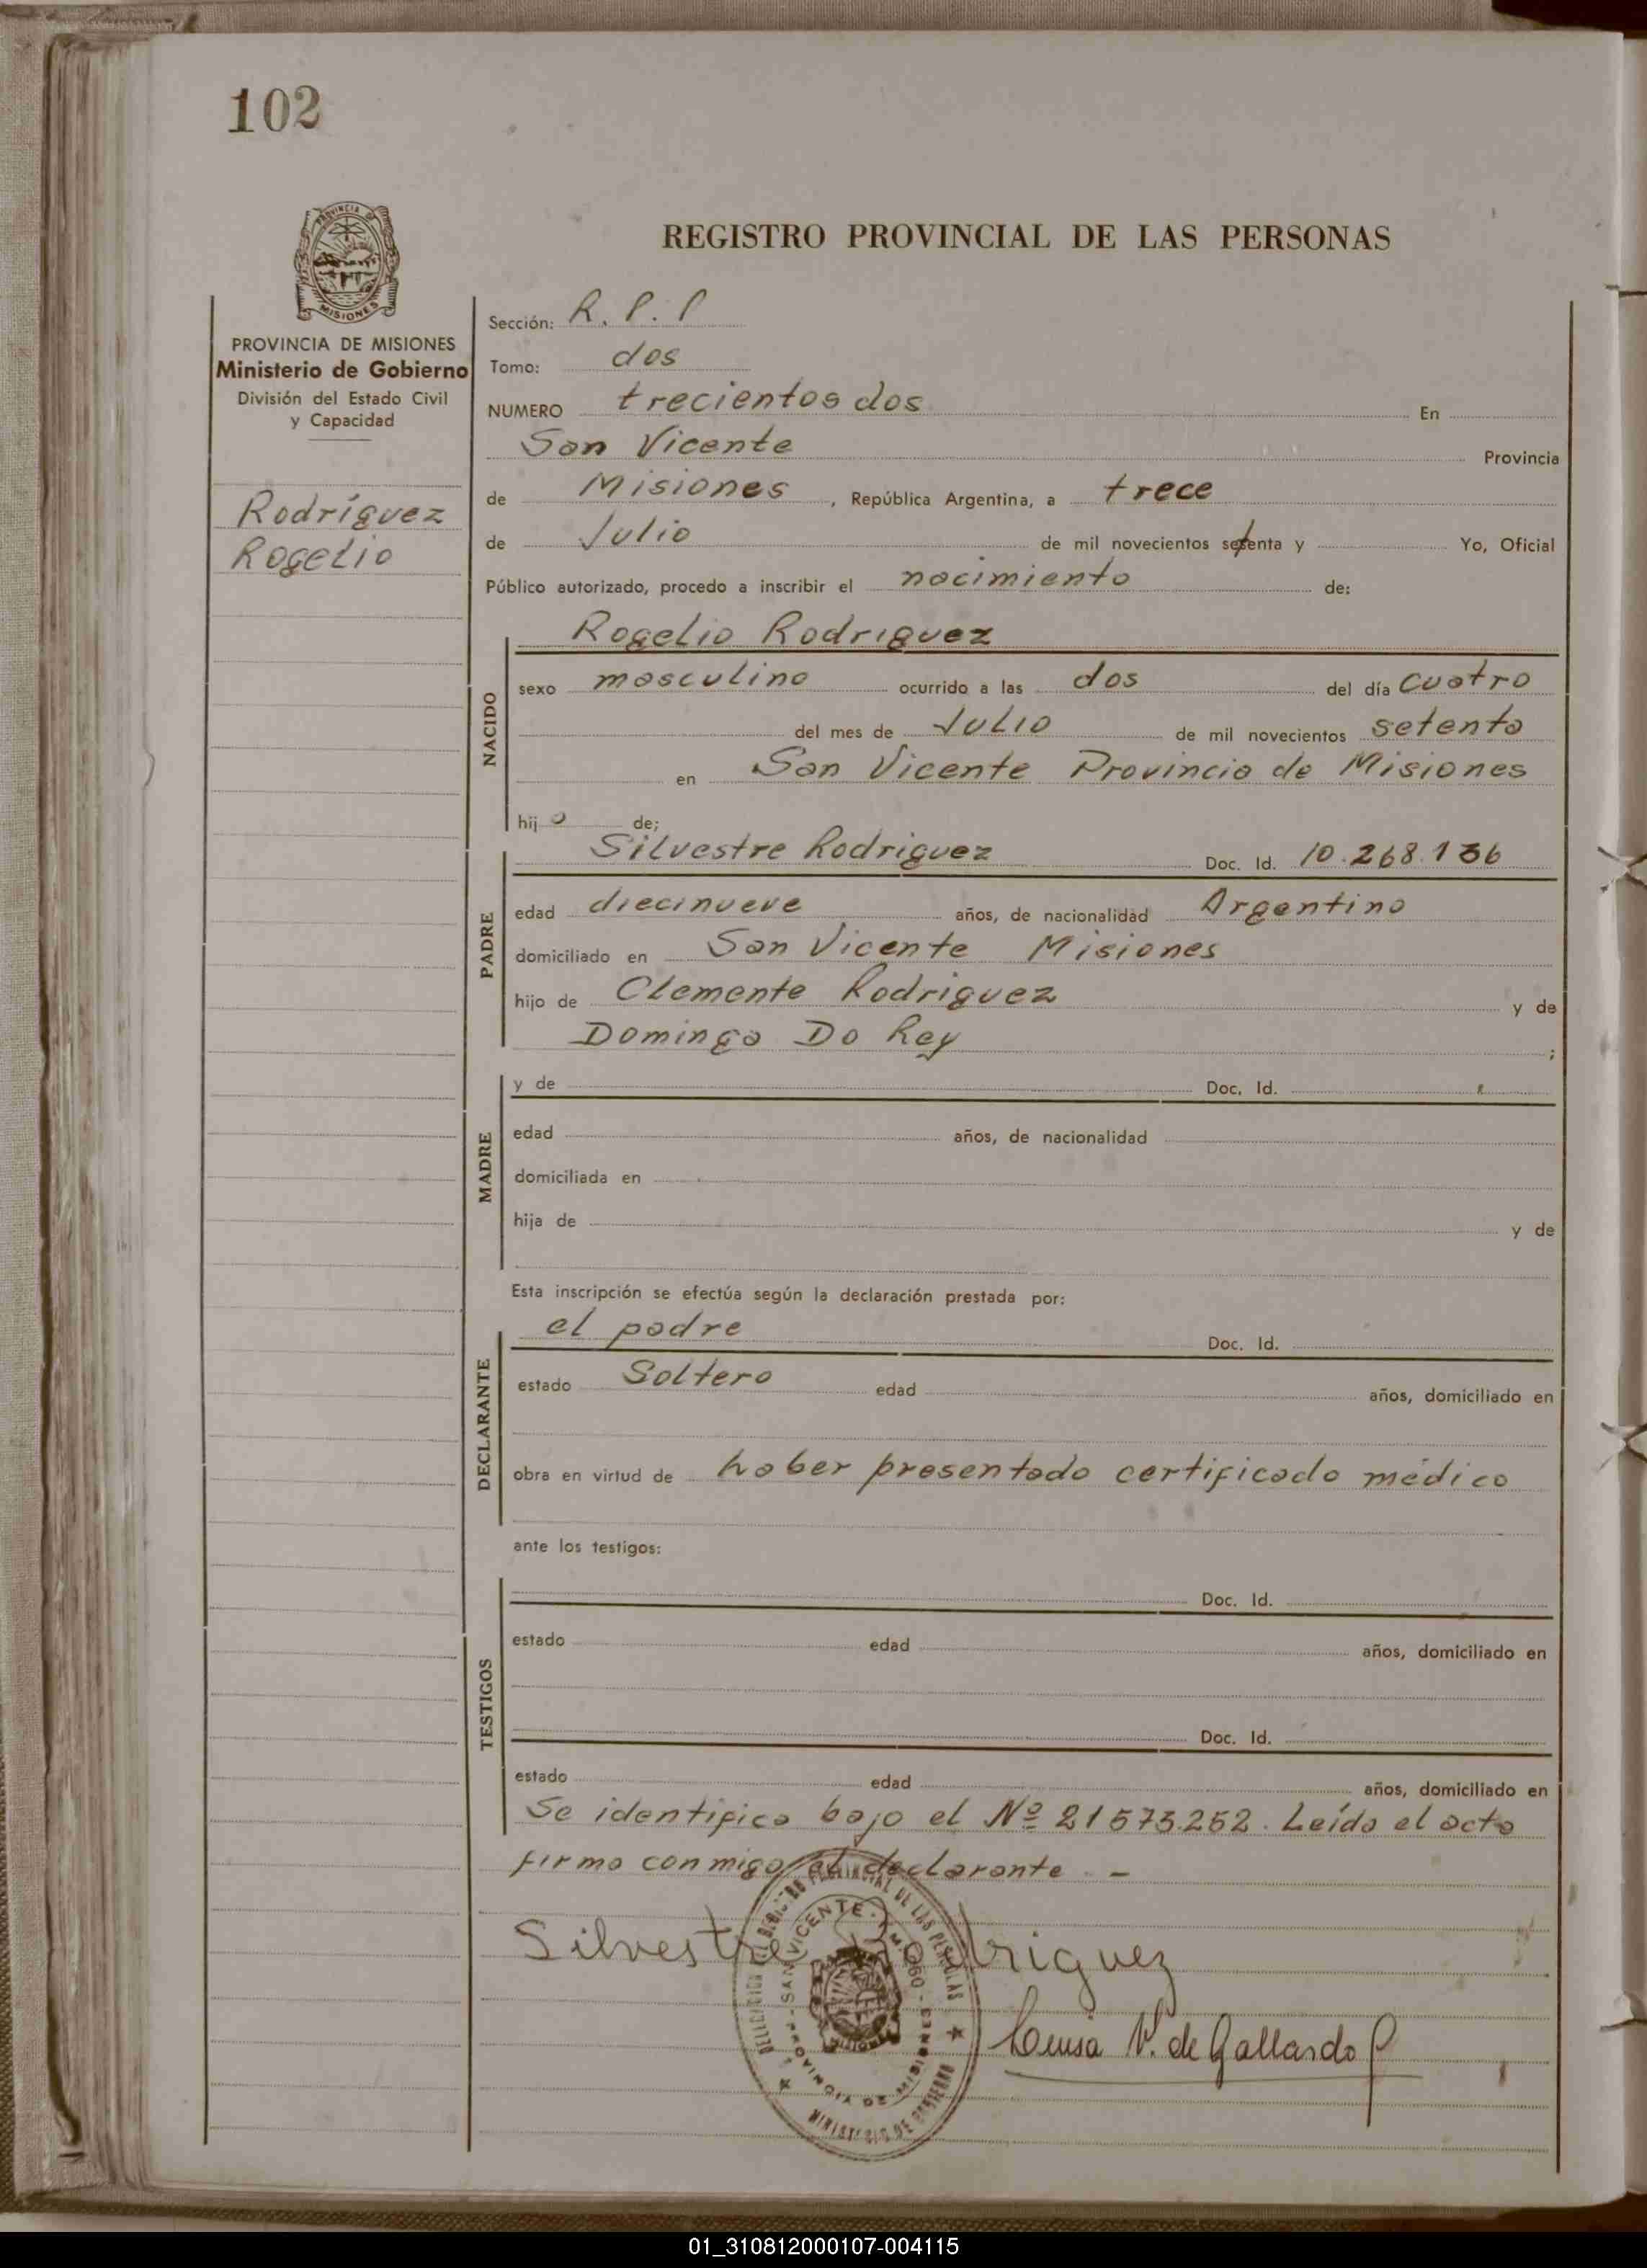 102
PROVINCIA DE
MISIONES
REGISTRO PROVINCIAL DE LAS PERSONAS
PROVINCIA DE MISIONES
Ministerio de Gobierno
División del Estado Civil
y Capacidad
Rodríguez
Rogelio
Sección: R. P. P
Tomo: dos
NUMERO trecientos dos En
San Vicente Provincia
de Misiones, República Argentina, a trece
de Julio de mil novecientos setenta y Yo, Oficial
Público autorizado, procedo a inscribir el nacimiento de:
NACIDO
Rogelio Rodriguez
sexo masculino ocurrido a las dos del día cuatro
del mes de Julio de mil novecientos setenta
en San Vicente Provincia de Misiones
hijo de;
PADRE
Silvestre Rodriguez Doc. Id. 10.268.136
edad diecinueve años, de nacionalidad Argentina
domiciliado en San Vicente Misiones
hijo de Clemente Rodriguez y de
Dominga Do Rey ;
MADRE
y de Doc. Id.
edad años, de nacionalidad
domiciliada en
hija de y de
Esta inscripción se efectúa según la declaración prestada por:
DECLARANTE
el padre Doc. Id.
estado Soltero edad años, domiciliado en
obra en virtud de haber presentado certificado médico
ante los testigos:
TESTIGOS
Doc. Id.
estado edad años, domiciliado en
Doc. Id.
estado edad años, domiciliado en
Se identifica bajo el Nº 21573.252. Leída el acta
firma conmigo el declarante. -
Silvestre Rodriguez
Luisa V. de Gallardo
DELEGACION DEL REGISTRO PROVINCIAL DE LAS PERSONAS
SAN VICENTE
PROVINCIA DE MISIONES
MINISTERIO DE GOBIERNO
01_310812000107-004115